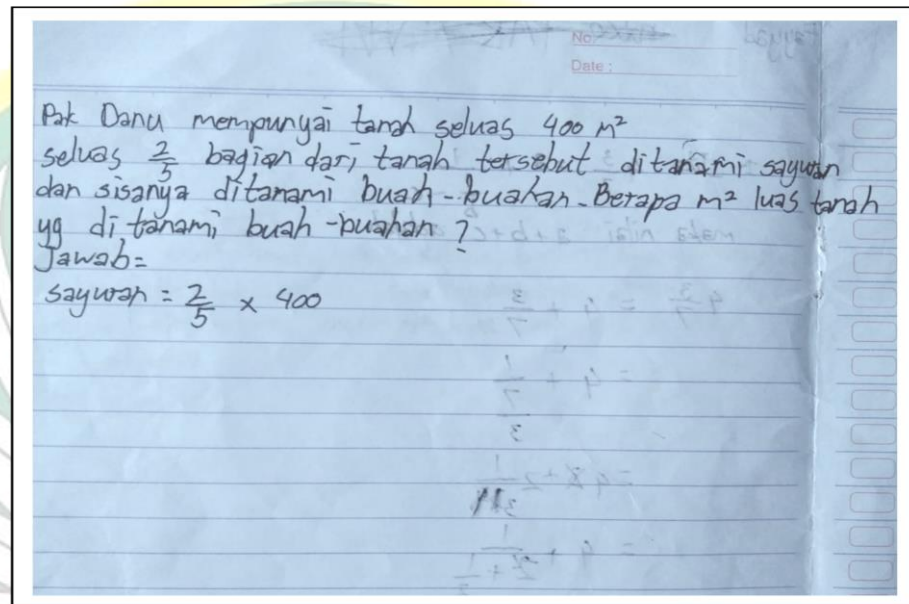 No:
Date:
Pak Danu mempunyai tanah seluas 400 m²
seluas 2/5 bagian dari tanah tersebut ditanami sayuran
dan sisanya ditanami buah-buahan. Berapa m² luas tanah
yg ditanami buah-buahan?
Jawab=
sayuran = 2/5 × 400